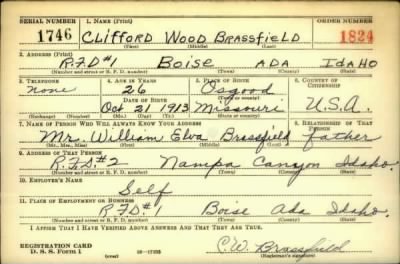 SERIAL NUMBER 1. NAME (Print) ORDER NUMBER
1746 CLIFFORD WOOD BRASSFIELD 1824
(First) (Middle) (Last)
2. ADDRESS (Print)
R.F.D #1 BOISE ADA IDAHO
(Number and street or R. F. D. number) (Town) (County) (State)
3. TELEPHONE 4. AGE IN YEARS 5. PLACE OF BIRTH 6. COUNTRY OF CITIZENSHIP
None 26 Osgood
DATE OF BIRTH (Town or county)
Oct 21 1913 Missouri U.S.A.
7. NAME OF PERSON WHO WILL ALWAYS KNOW YOUR ADDRESS 8. RELATIONSHIP OF THAT PERSON
Mr. William Elva Brassfield, father
(Mr., Mrs., Miss) (First) (Middle) (Last)
9. ADDRESS OF THAT PERSON
R.F.D. #2 Nampa Canyon Idaho.
(Number and street or R. F. D. number) (Town) (County) (State)
10. EMPLOYER'S NAME
Self
11. PLACE OF EMPLOYMENT OR BUSINESS
R.F.D #1 Boise Ada Idaho.
(Number and street or R. F. D. number) (Town) (County) (State)
I AFFIRM THAT I HAVE VERIFIED ABOVE ANSWERS AND THAT THEY ARE TRUE.
REGISTRATION CARD
D. S. S. FORM 1 (over) C.W. Brassfield
(Registrant's signature)